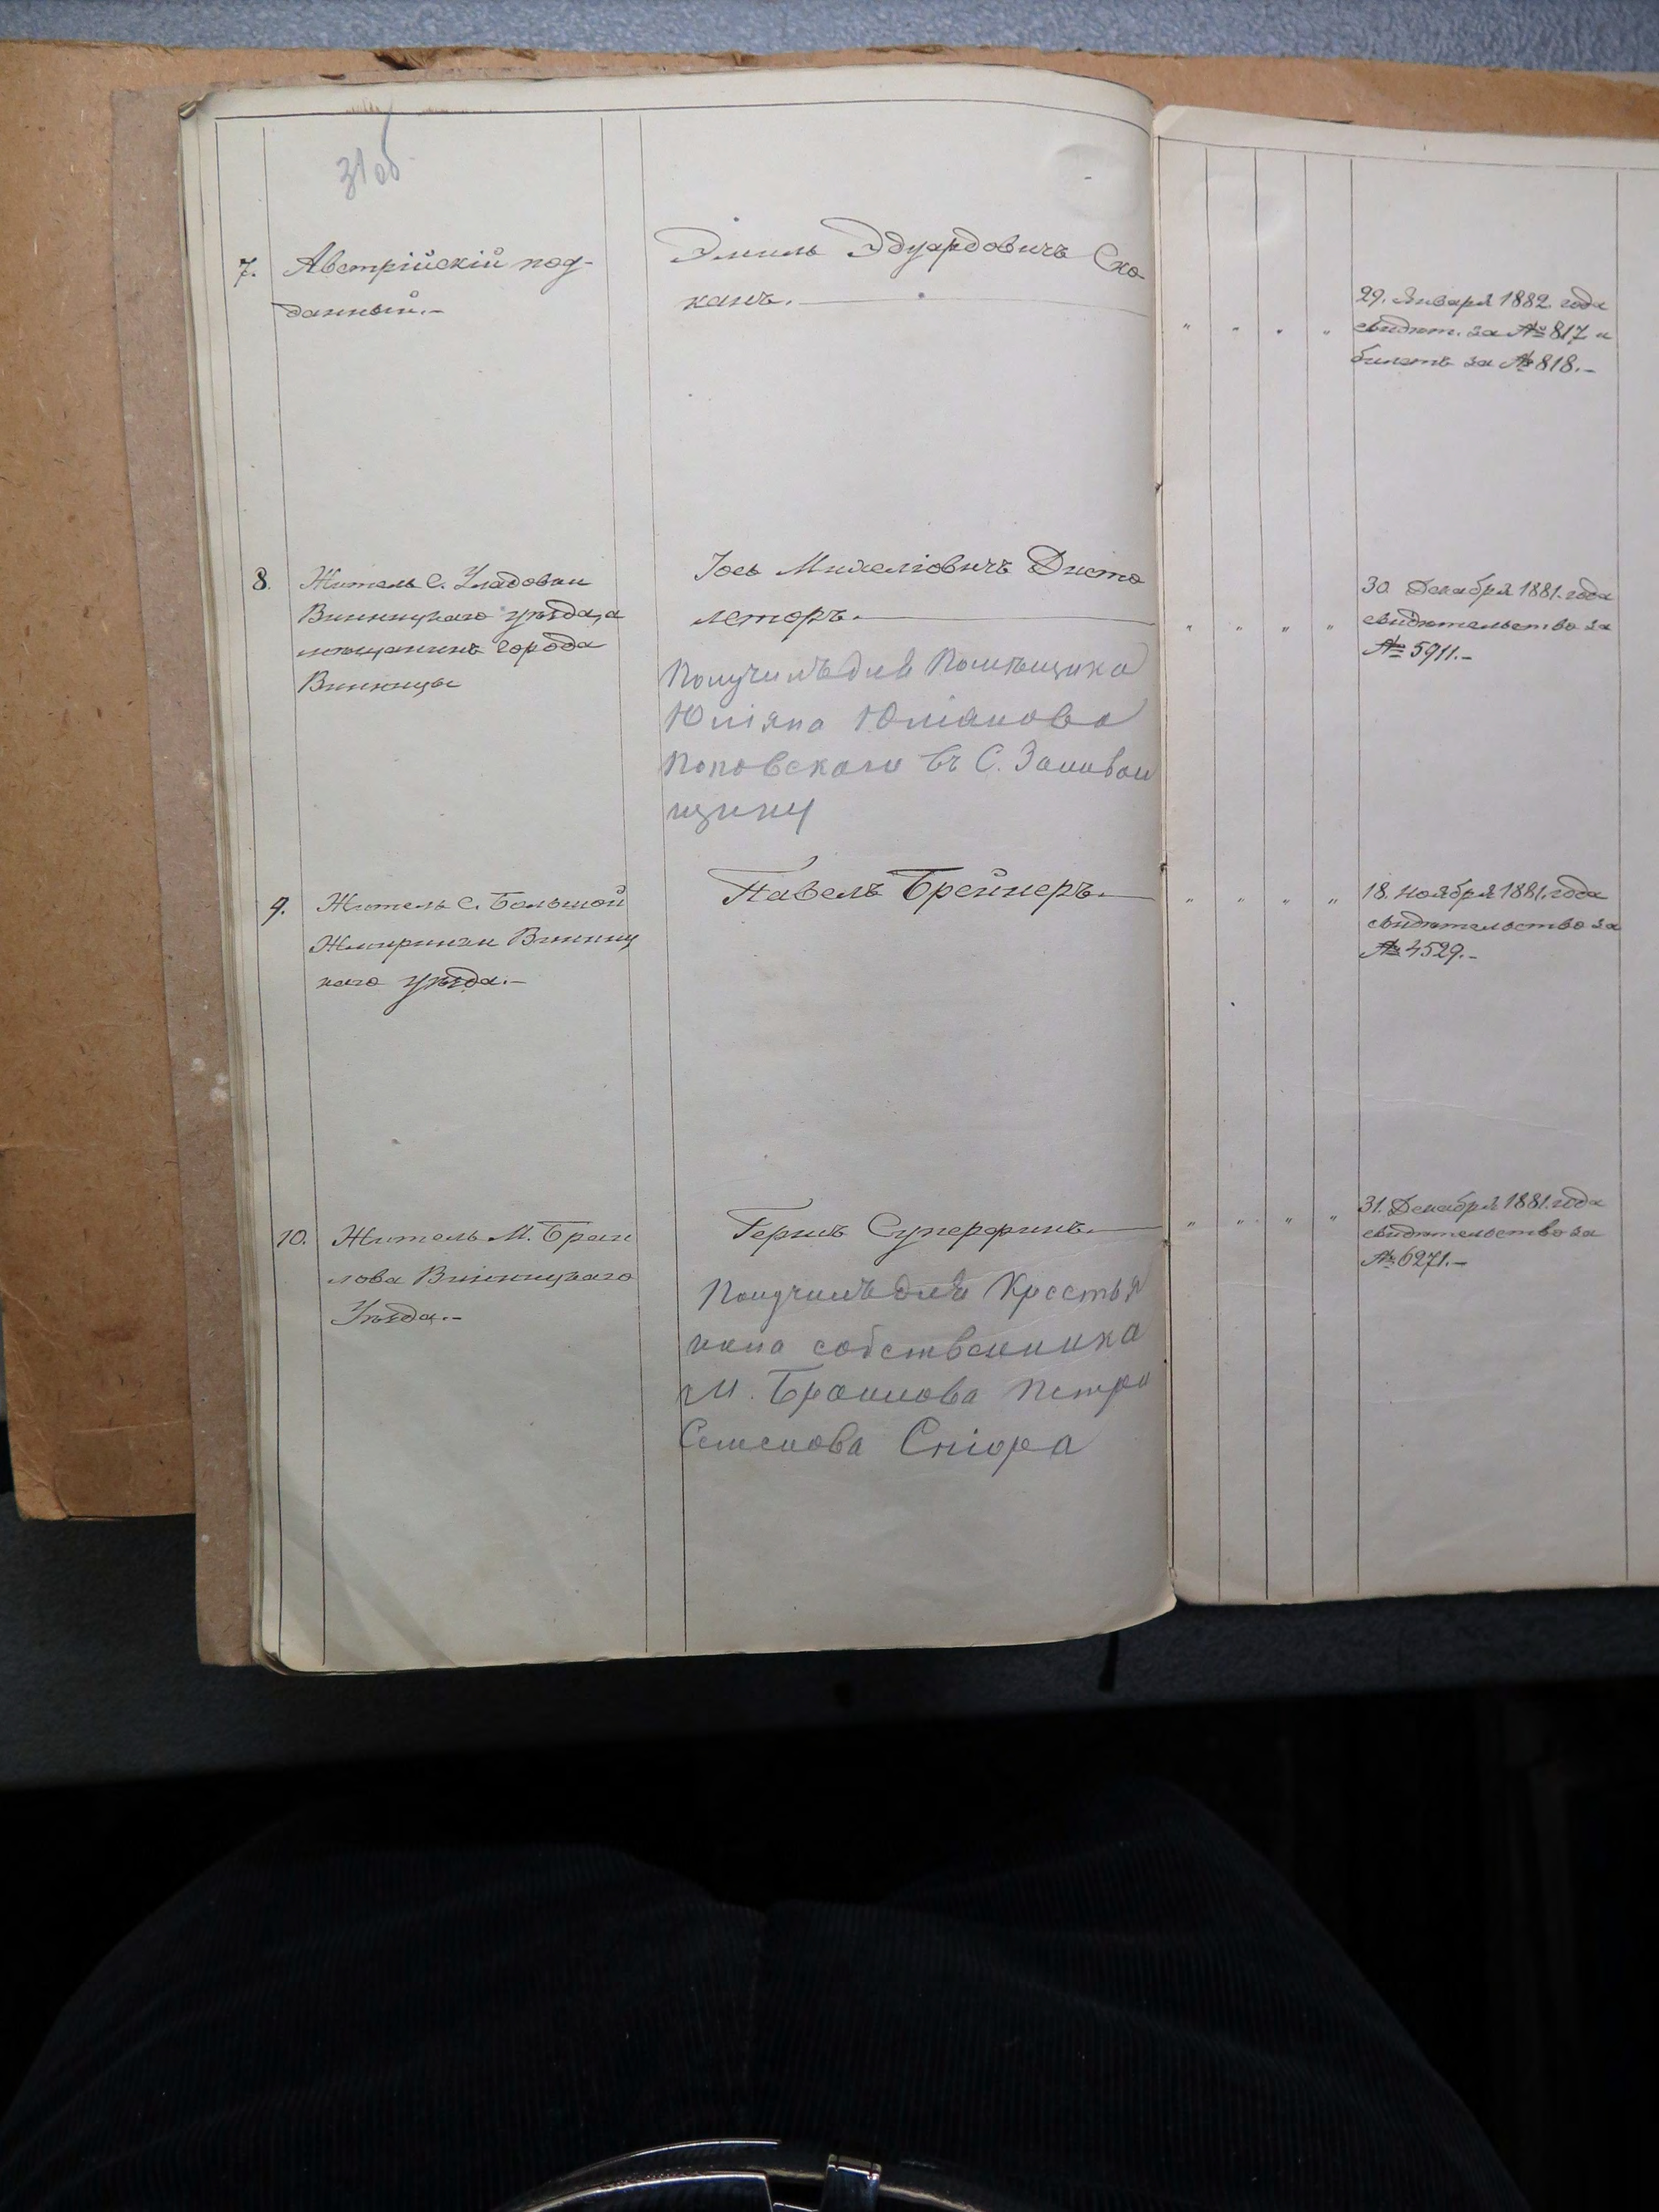 31 об
7. Австрійскій под-
данный.-
Эмиль Эдуардовичъ Ско-
канъ.
" " " "
29. Января 1882. года
свидѣт. за № 817 и
билетъ за № 818.-
8. Житель С. Уладовки
Винницкаго уѣзда, а
мѣщанинъ города
Винницы
Іось Михелiовичъ Дисто
леторъ.
Получилъ для Помѣщика
Юліяна Юліанова
Поповскаго въ С.
щину
" " " "
30. Декабря 1881. года
свидѣтельство за
№ 5911.-
9. Житель С. Большой
Жмиринки Винниц
каго уѣзда.-
Павелъ Брейнеръ.
" " " "
18. Ноября 1881. года
свидѣтельство за
№ 4529.-
10. Житель М. Браи
лова Винницкаго
Уѣзда.-
Гершъ Суперфинъ.
Получилъ для Крестья
нина собственника
М. Браилова Петра
Семенова Сніора
" " " "
31. Декабря 1881. года
свидѣтельство за
№ 6271.-